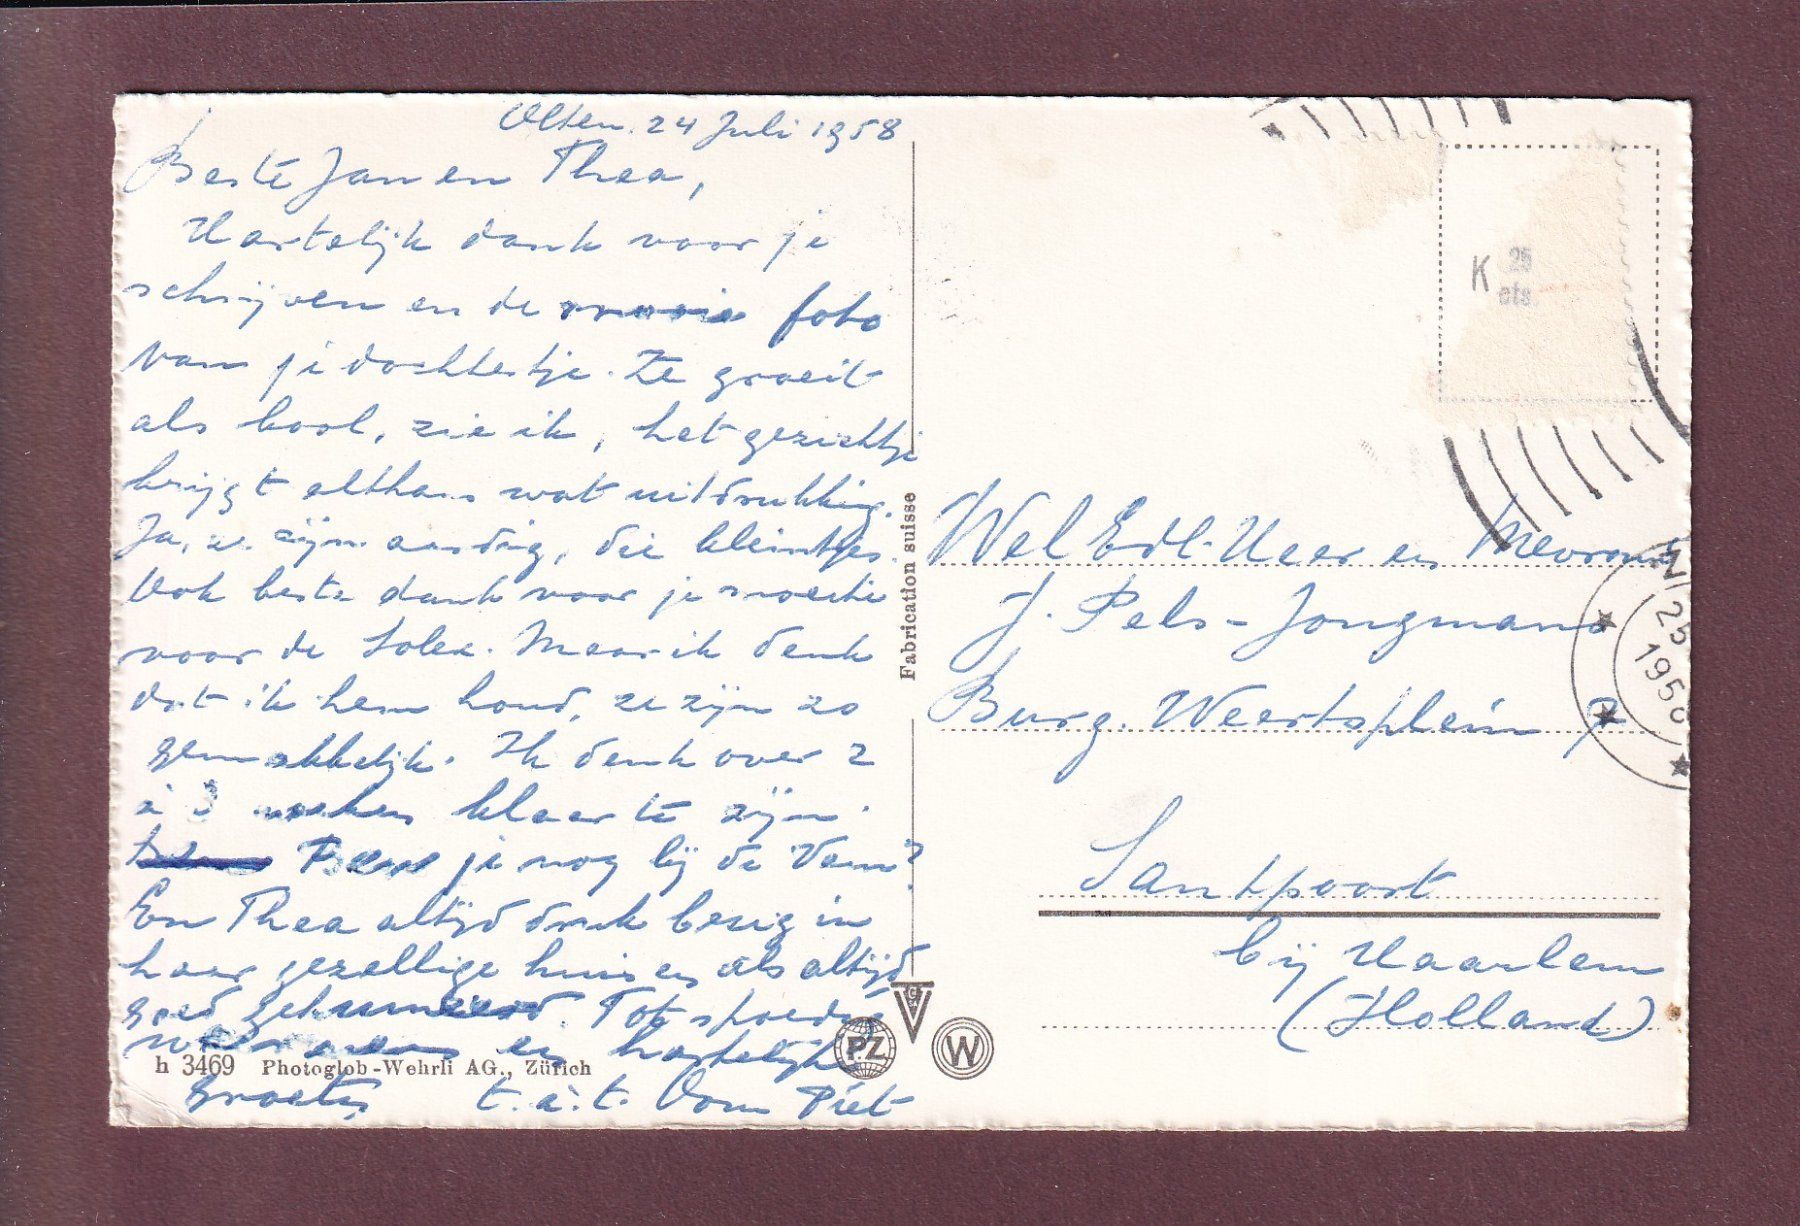 Olten. 24 Juli 1958
Beste Jan en Thea,
Hartelijk dank voor je
schrijven en de mooie foto
van je dochtertje. Ze groeit
als kool, zie ik, het gezichtje
krijgt althans wat uitdrukking.
Ja, ze zijn aardig, die kleintjes.
Ook beste dank voor je moeite
voor de Solex. Maar ik denk
dat ik hem houd, ze zijn zo
gemakkelijk. Ik denk over 2
à 3 weken klaar te zijn.
Ben je nog bij de Vem?
En Thea altijd druk bezig in
haar gezellige huis en als altijd
goed gehumeurd. Tot spoedig
en hartelijke
groeten t. à. t. Oom Piet
h 3469 Photoglob-Wehrli AG., Zürich
Fabrication suisse
PZ
W
K 25
cts.
Wel Edl. Heer en Mevrouw
J. Pels-Jongmans
Burg. Weertsplein 7
Santpoort
bij Haarlem
(Holland)
25
1958